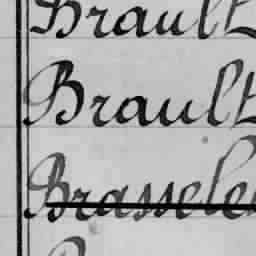 Brault
Brault
Brassele